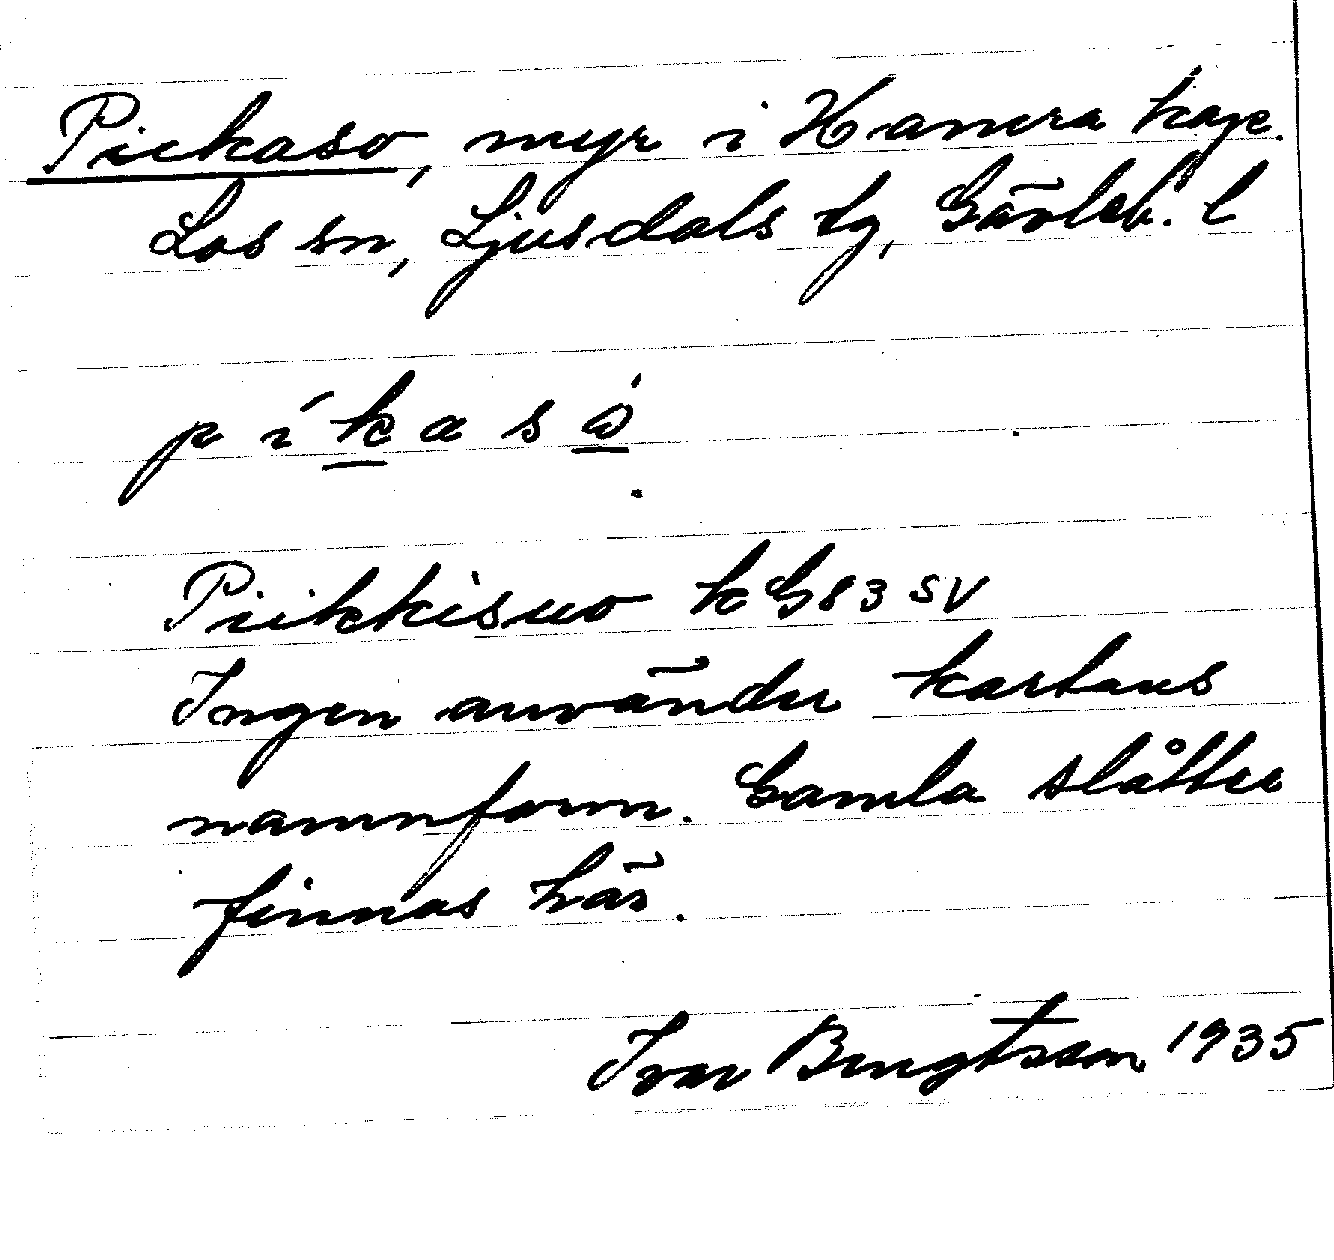 Pickaso, myr i Hamra kap.
Los sn, Ljusdals tg, Gävleb. l
p í k a s ò
Piikkisuo k G 83 SV
Ingen använder kartans
namnform. Gamla slåtter
finnas här.
Ivar Bengtsson 1935